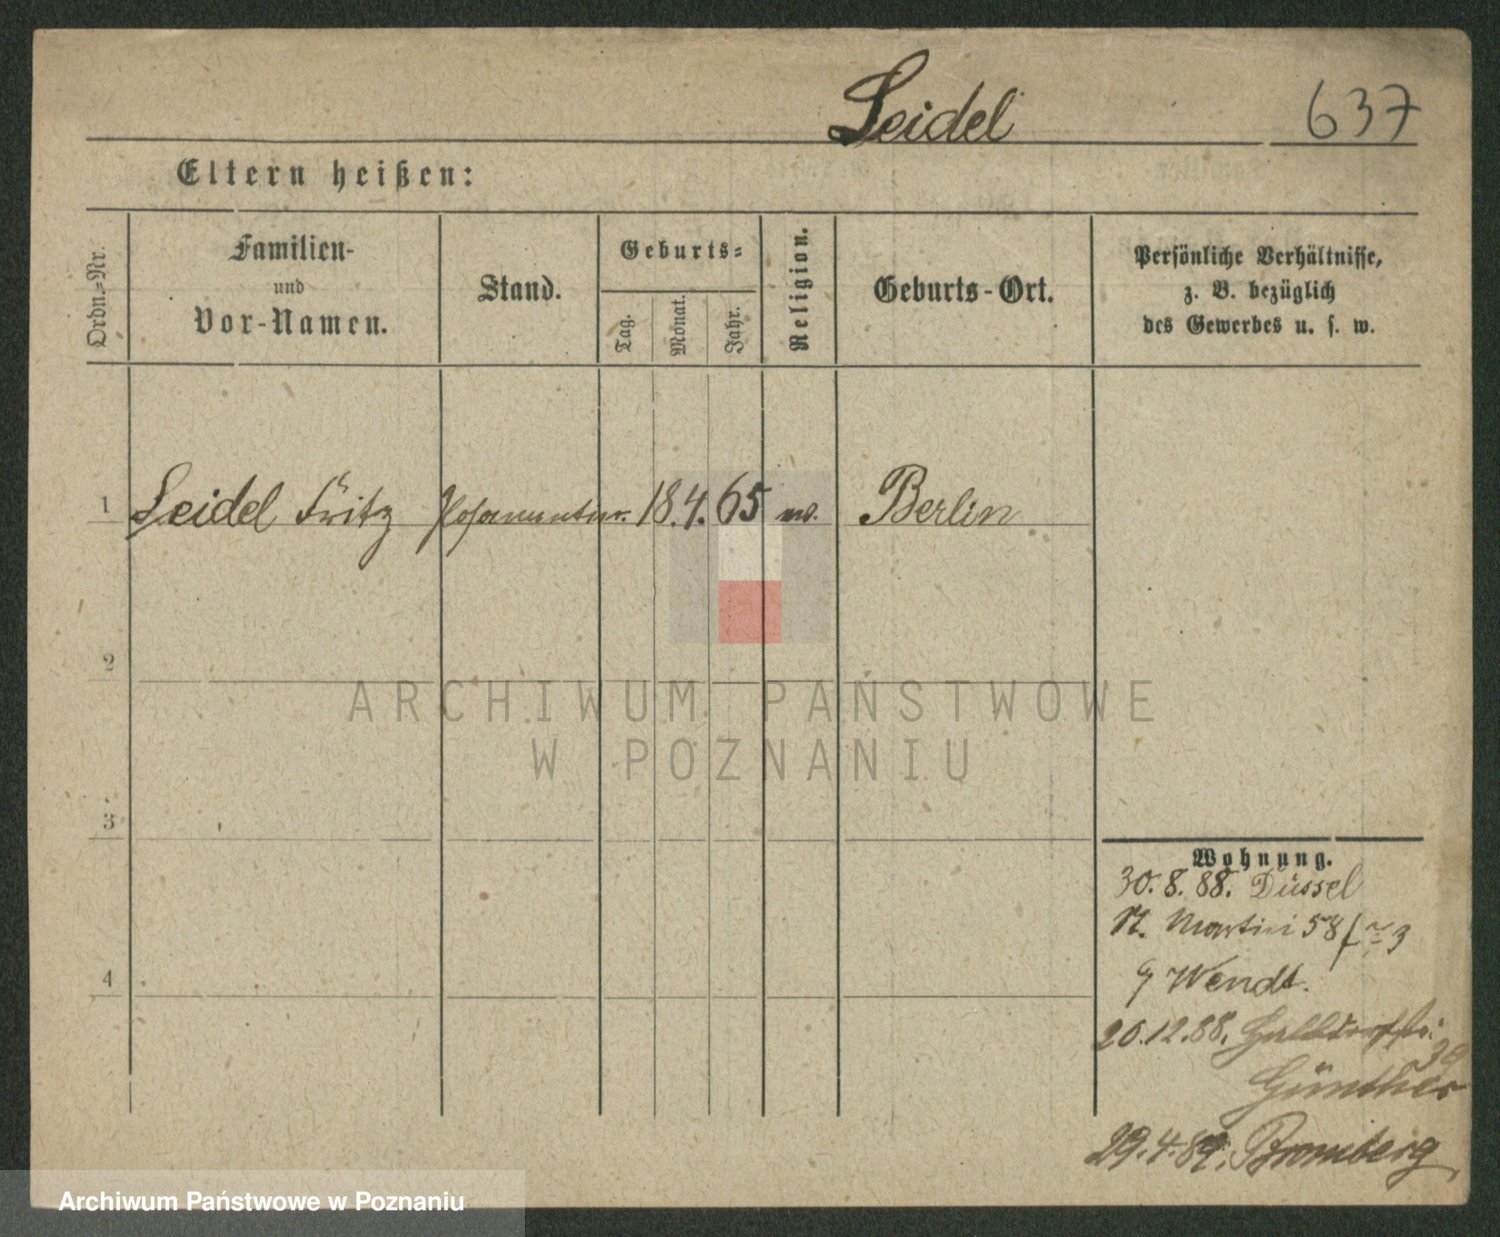 Seidel 637
Eltern heißen:
Ordn.-Nr.
Familien-
und
Vor-Namen.
Stand.
Geburts-
Tag.
Monat.
Jahr.
Religion.
Geburts-Ort.
Persönliche Verhältnisse,
z. B. bezüglich
des Gewerbes u. s. w.
1 Seidel Fritz 18. 4. 65 Berlin
2
ARCHIWUM PAŃSTWOWE
W POZNANIU
3
Wohnung.
30. 8. 88. Düssel
St. Martin 58 3
Wendt.
4
20.12.88.
39
Günther
29.4.89. Bromberg
Archiwum Państwowe w Poznaniu